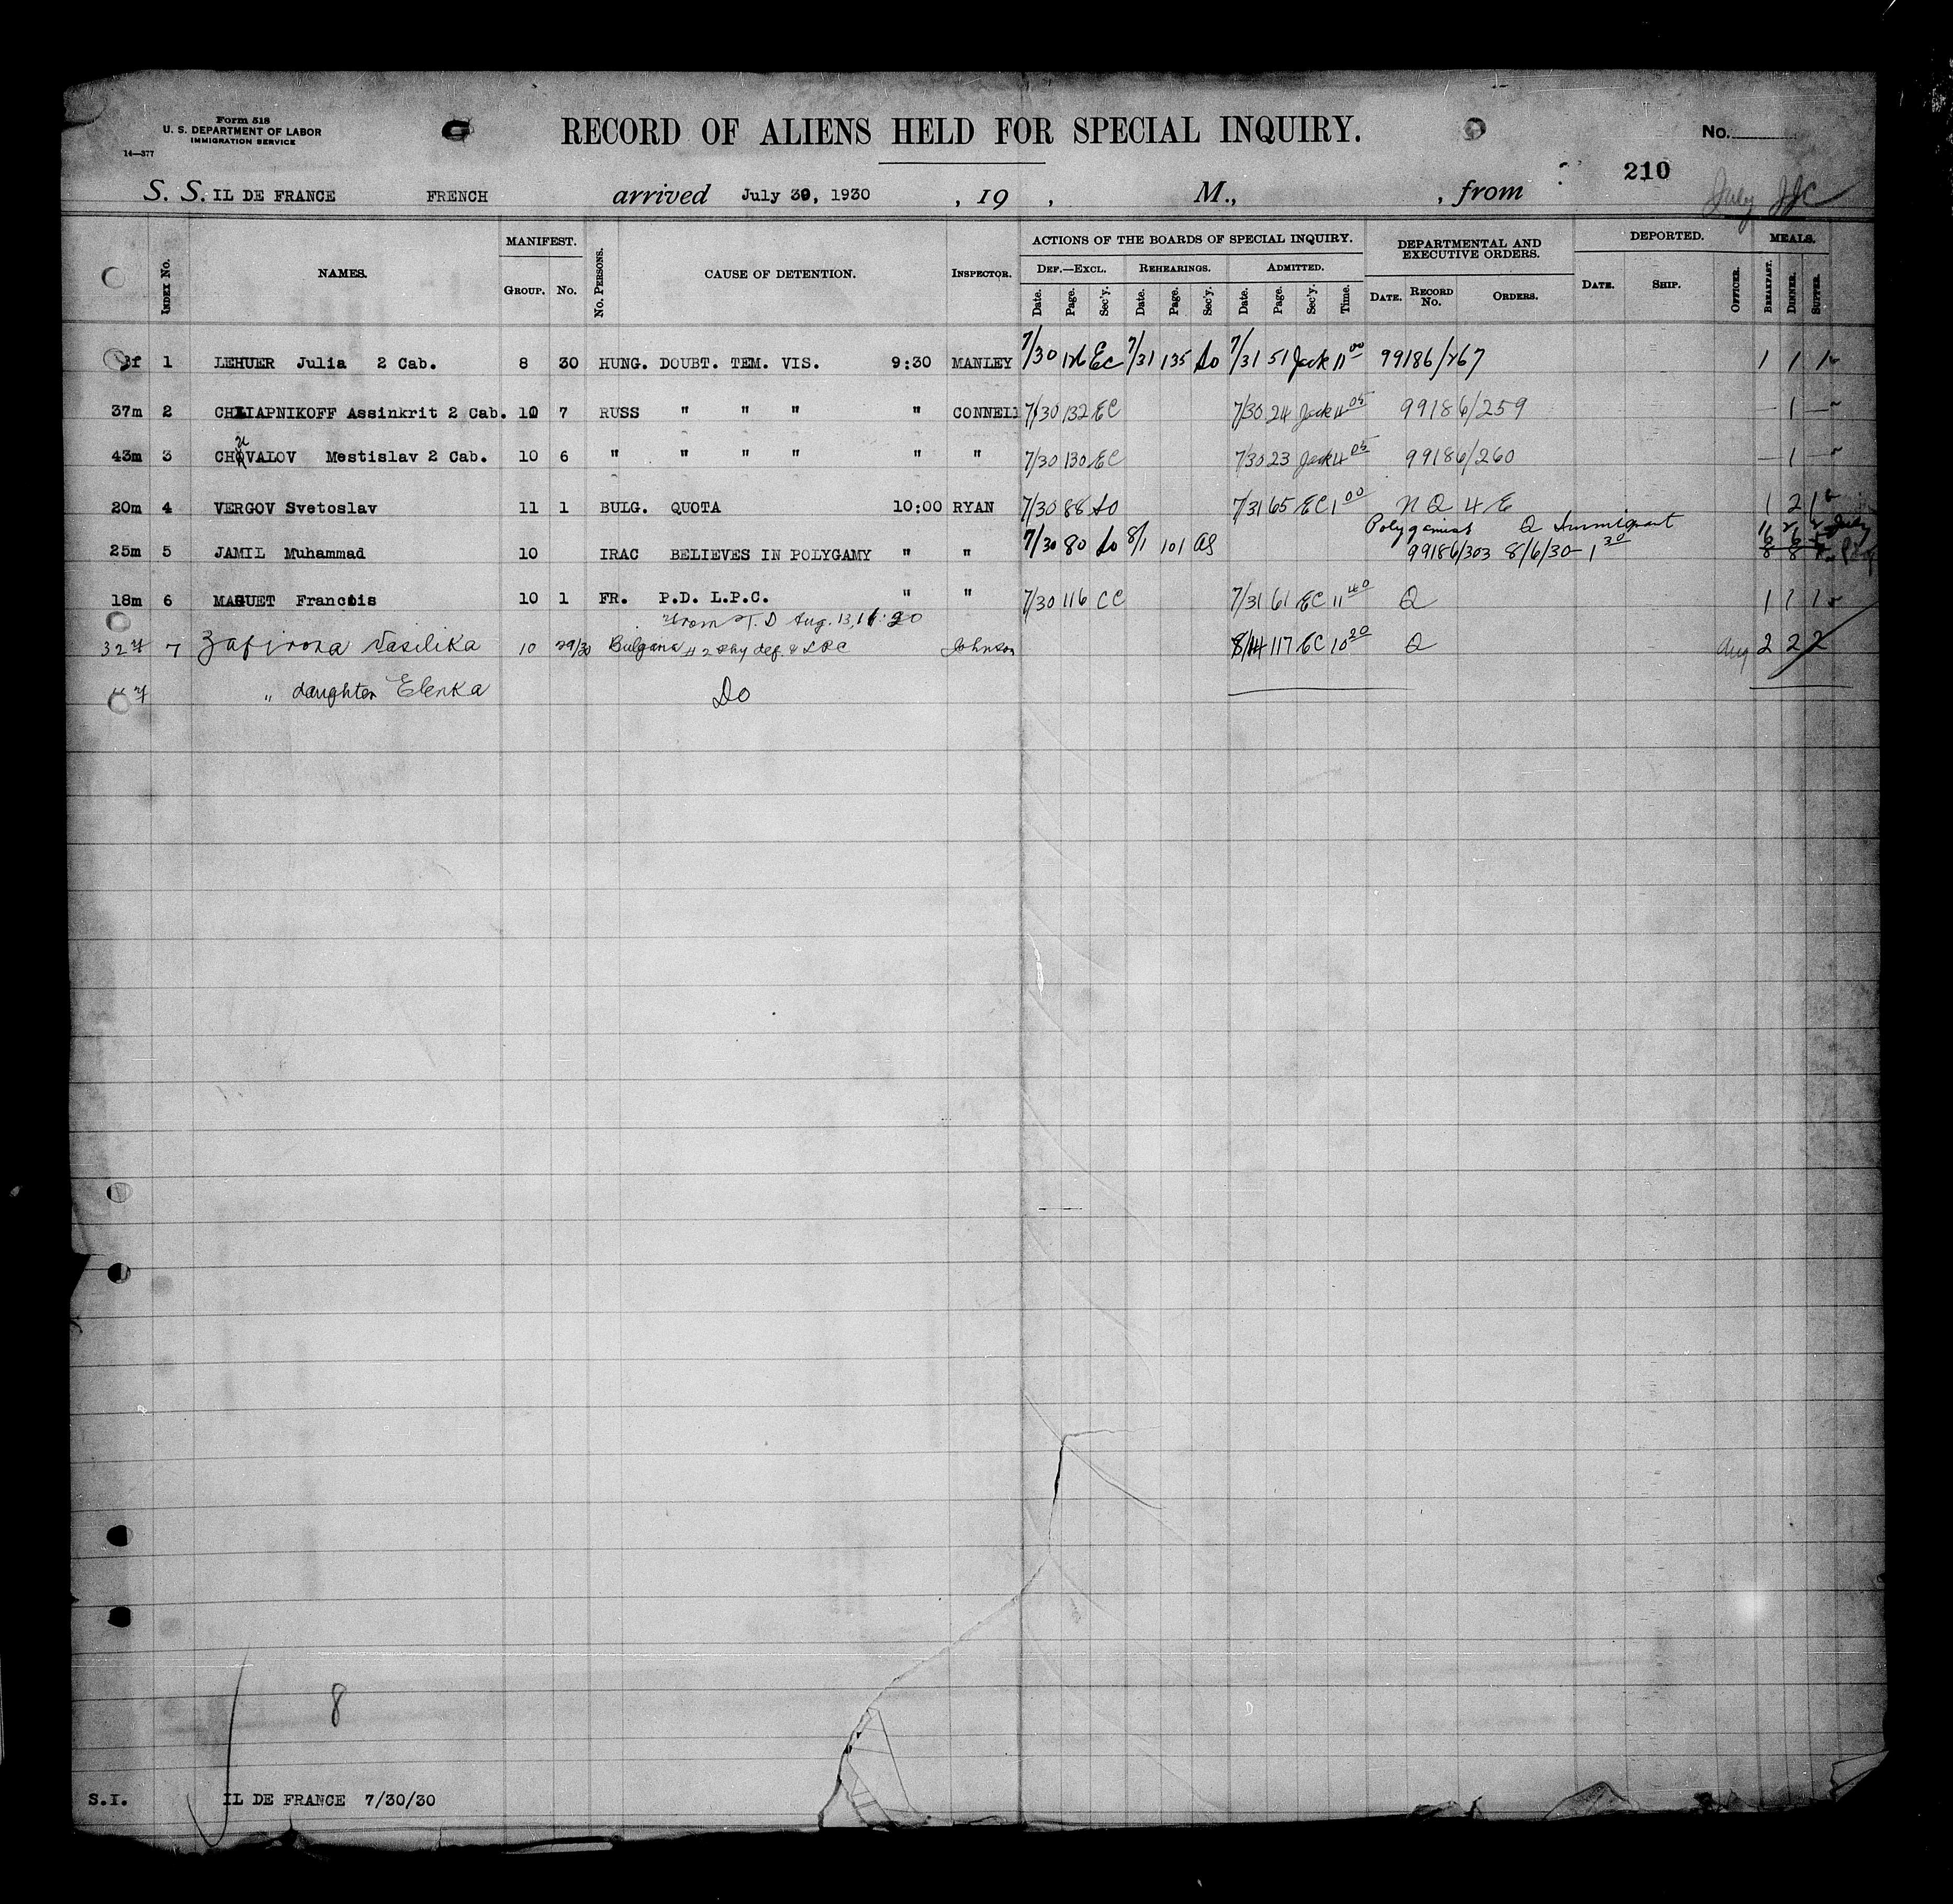 Form 518
U. S. DEPARTMENT OF LABOR
IMMIGRATION SERVICE
14—377
RECORD OF ALIENS HELD FOR SPECIAL INQUIRY.
No.
210
S. S. IL DE FRANCE FRENCH arrived July 30, 1930 , 19 , M., , from
July JJC
INDEX No. NAMES. MANIFEST. GROUP. No. No. PERSONS. CAUSE OF DETENTION. INSPECTOR. ACTIONS OF THE BOARDS OF SPECIAL INQUIRY. DEF.—EXCL. Date. Page. Sec'y. REHEARINGS. Date. Page. Sec'y. ADMITTED. Date. Page. Sec'y. Time. DEPARTMENTAL AND EXECUTIVE ORDERS. DATE. RECORD No. ORDERS. DEPORTED. DATE. SHIP. OFFICER. MEALS. BREAKFAST. DINNER. SUPPER.
f 1 LEHUER Julia 2 Cab. 8 30 HUNG. DOUBT. TEM. VIS. 9:30 MANLEY 7/30 126 EC 7/31 135 So 7/31 51 Jack 11 00 99186/267 1 1 1
37m 2 CHLIAPNIKOFF Assinkrit 2 Cab. 10 7 RUSS " " " " CONNELL 7/30 132 EC 7/30 24 Jack 4 05 99186/259 — 1 —
43m 3 CHUVALOV Mestislav 2 Cab. 10 6 " " " " " " 7/30 130 EC 7/30 23 Jack 4 05 99186/260 — 1 —
20m 4 VERGOV Svetoslav 11 1 BULG. QUOTA 10:00 RYAN 7/30 88 So 7/31 65 EC 1 00 N Q 4 E 1 2 1
Polygamist Q Immigrant
25m 5 JAMIL Muhammad 10 IRAC BELIEVES IN POLYGAMY " " 7/30 80 So 8/1 101 AS 99186/303 8/6/30 — 1 30
18m 6 MAGUET Francois 10 1 FR. P.D. L.P.C. " " 7/30 116 CC 7/31 61 EC 11 40 Q 1 1 1
From T.D Aug. 13, 11:20
32 f 7 Zafirova Vasilika 10 29/30 Bulgaria # 2 phy def & LPC Johnson 8/14 117 EC 10 20 Q Aug 2 2 2
" daughter Elenka Do
8
S.I. IL DE FRANCE 7/30/30